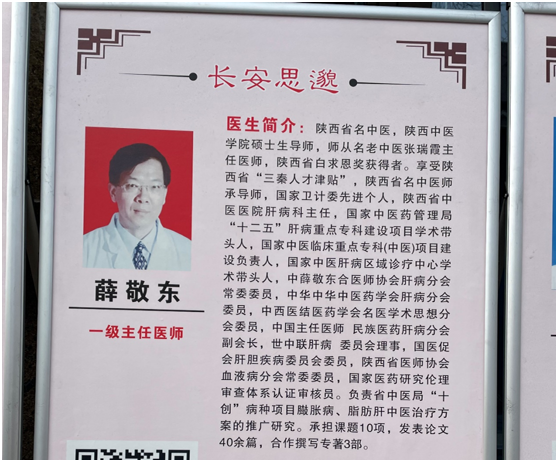 长安思邈
医生简介：陕西省名中医，陕西中医
学院硕士生导师，师从名老中医张瑞霞主
任医师，陕西省白求恩奖获得者。享受陕西
省“三秦人才津贴”，陕西省名中医师
承导师，国家卫计委先进个人，陕西省中
医医院肝病科主任，国家中医药管理局
“十二五”肝病重点专科建设项目学术带
头人，国家中医临床重点专科(中医)项目建
设负责人，国家中医肝病区域诊疗中心学
术带头人，中薛敬东合医师协会肝病分会
常委委员，中华中华中医药学会肝病分会
委员，中西医结医药学会名医学术思想分
会委员，中国主任医师 民族医药肝病分会
副会长，世中联肝病 委员会理事，国医促
会肝胆疾病委员会委员，陕西省医师协会
血液病分会常委委员，国家医药研究伦理
审查体系认证审核员。负责省中医局“十
创”病种项目臌胀病、脂肪肝中医治疗方
案的推广研究。承担课题10项，发表论文
40余篇，合作撰写专著3部。
薛敬东
一级主任医师